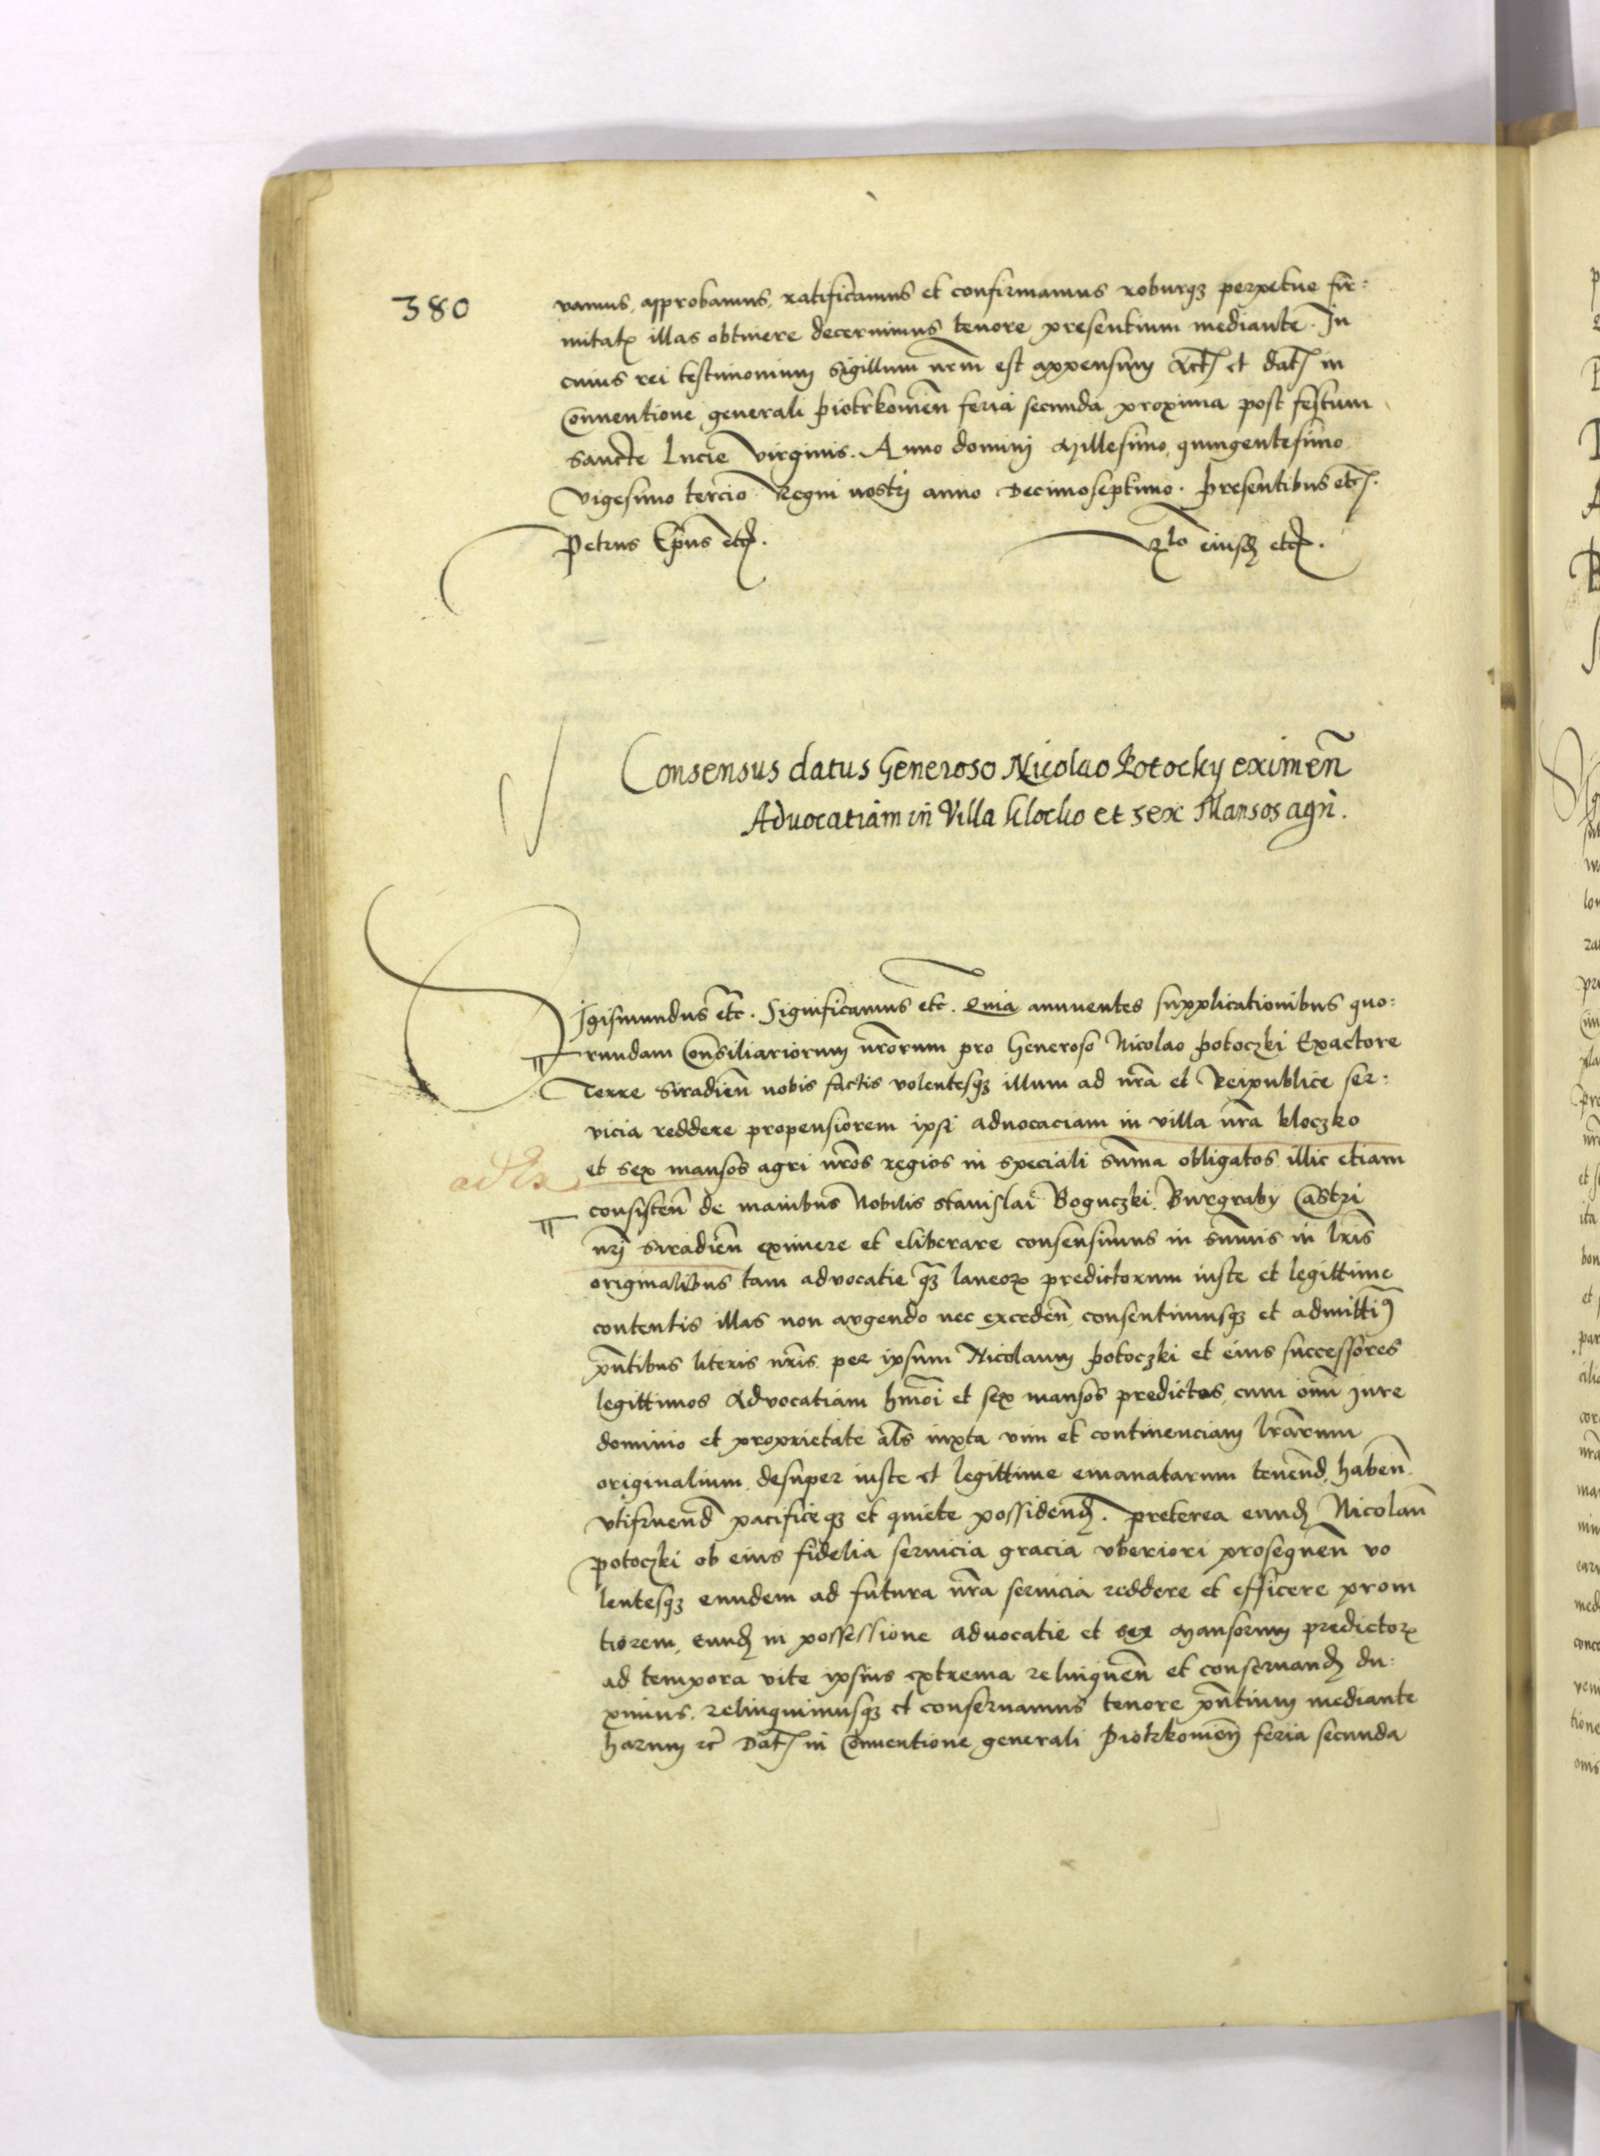 380
vamus, approbamus, ratificamus et confirmamus roburqꝫ perpetue fir:
mitatꝭ illas obtinere decernimus tenore presentium mediante. In
cuius rei testimonium Sigillum nr̃m est appensum Actꝭ et datꝭ in
Conuentione generali piotrkouieñ feria secunda proxima post festum
Sancte Lucie Virginis. Anno domini Millesimo quingentesimo
Vigesimo tercio Regni nostri anno Decimoseptimo. presentibus etcꝭ.
Petrus Ep̃us etcꝭ. Rl̃o eiusdꝫ etcꝭ.
Consensus datus Generoso Nicolao Potocky eximeñ
Advocatiam in Villa Klocko et sex Mansos agri.
Sigismundus etc̃. Significamus etc. Quia annuentes supplicationibus quo:
rundam Consiliariorum nr̃orum pro Generoso Nicolao potoczki Exactore
Terre Siradieñ nobis factis volentesqꝫ illum ad nr̃a et Reipublice ser:
vicia reddere propensiorem ipsi aduocaciam in villa nr̃a kloczko
et sex mansos agri nr̃os regios in speciali sum̃a obligatos illic etiam
consisteñ de manibus Nobilis Stanislai Boguczki Burgraby Castri
nr̃j Siradieñ eximere et eliberare consensimus in sum̃is in lr̃is
originalibus tam advocatie qꝫ laneorꝝ predictorum iuste et legittime
contentis illas non augendo nec excedeñ consentimusqꝫ et admittimꝰ
pñtibus literis nr̃is per ipsum Nicolaum potoczki et eius successores
legittimos Advocatiam hm̃oi et sex mansos predictos cum om̃i Jure
dominio et proprietate al̃s iuxta vim et continenciam lr̃arum
originalium desuper iuste et legittime emanatarum teneñd, habeñ
vtifrueñd pacificeqꝫ et quiete possideñdꝫ. preterea eundꝫ Nicolaũ
potoczki ob eius fidelia seruicia gracia vberiori prosequeñ vo
lentesqꝫ eundem ad futura nr̃a seruicia reddere et efficere prom
tiorem, eundꝫ in possessione advocatie et sex Mansorum predictorꝝ
ad tempora vite ipsius extrema relinqueñ et conseruandꝫ du:
ximus, relinquimusqꝫ et conseruamus tenore pñtium mediante
harum etc̃ Datꝭ in Conuentione generali Piotrkouieñ feria secunda